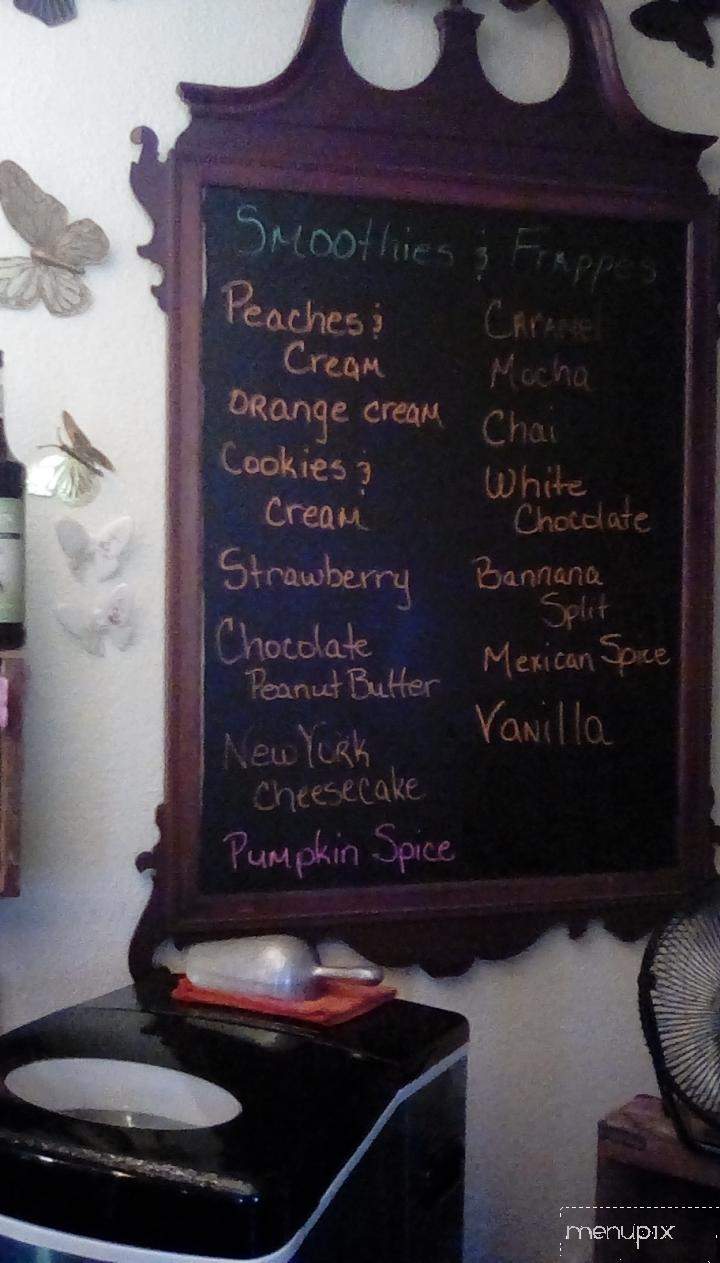 Smoothies & Frappes
Peaches &
Cream
Orange cream
Cookies &
Cream
Strawberry
Chocolate
Peanut Butter
New York
Cheesecake
Pumpkin Spice
Caramel
Mocha
Chai
White
Chocolate
Bannana
Split
Mexican Spice
Vanilla
menupix